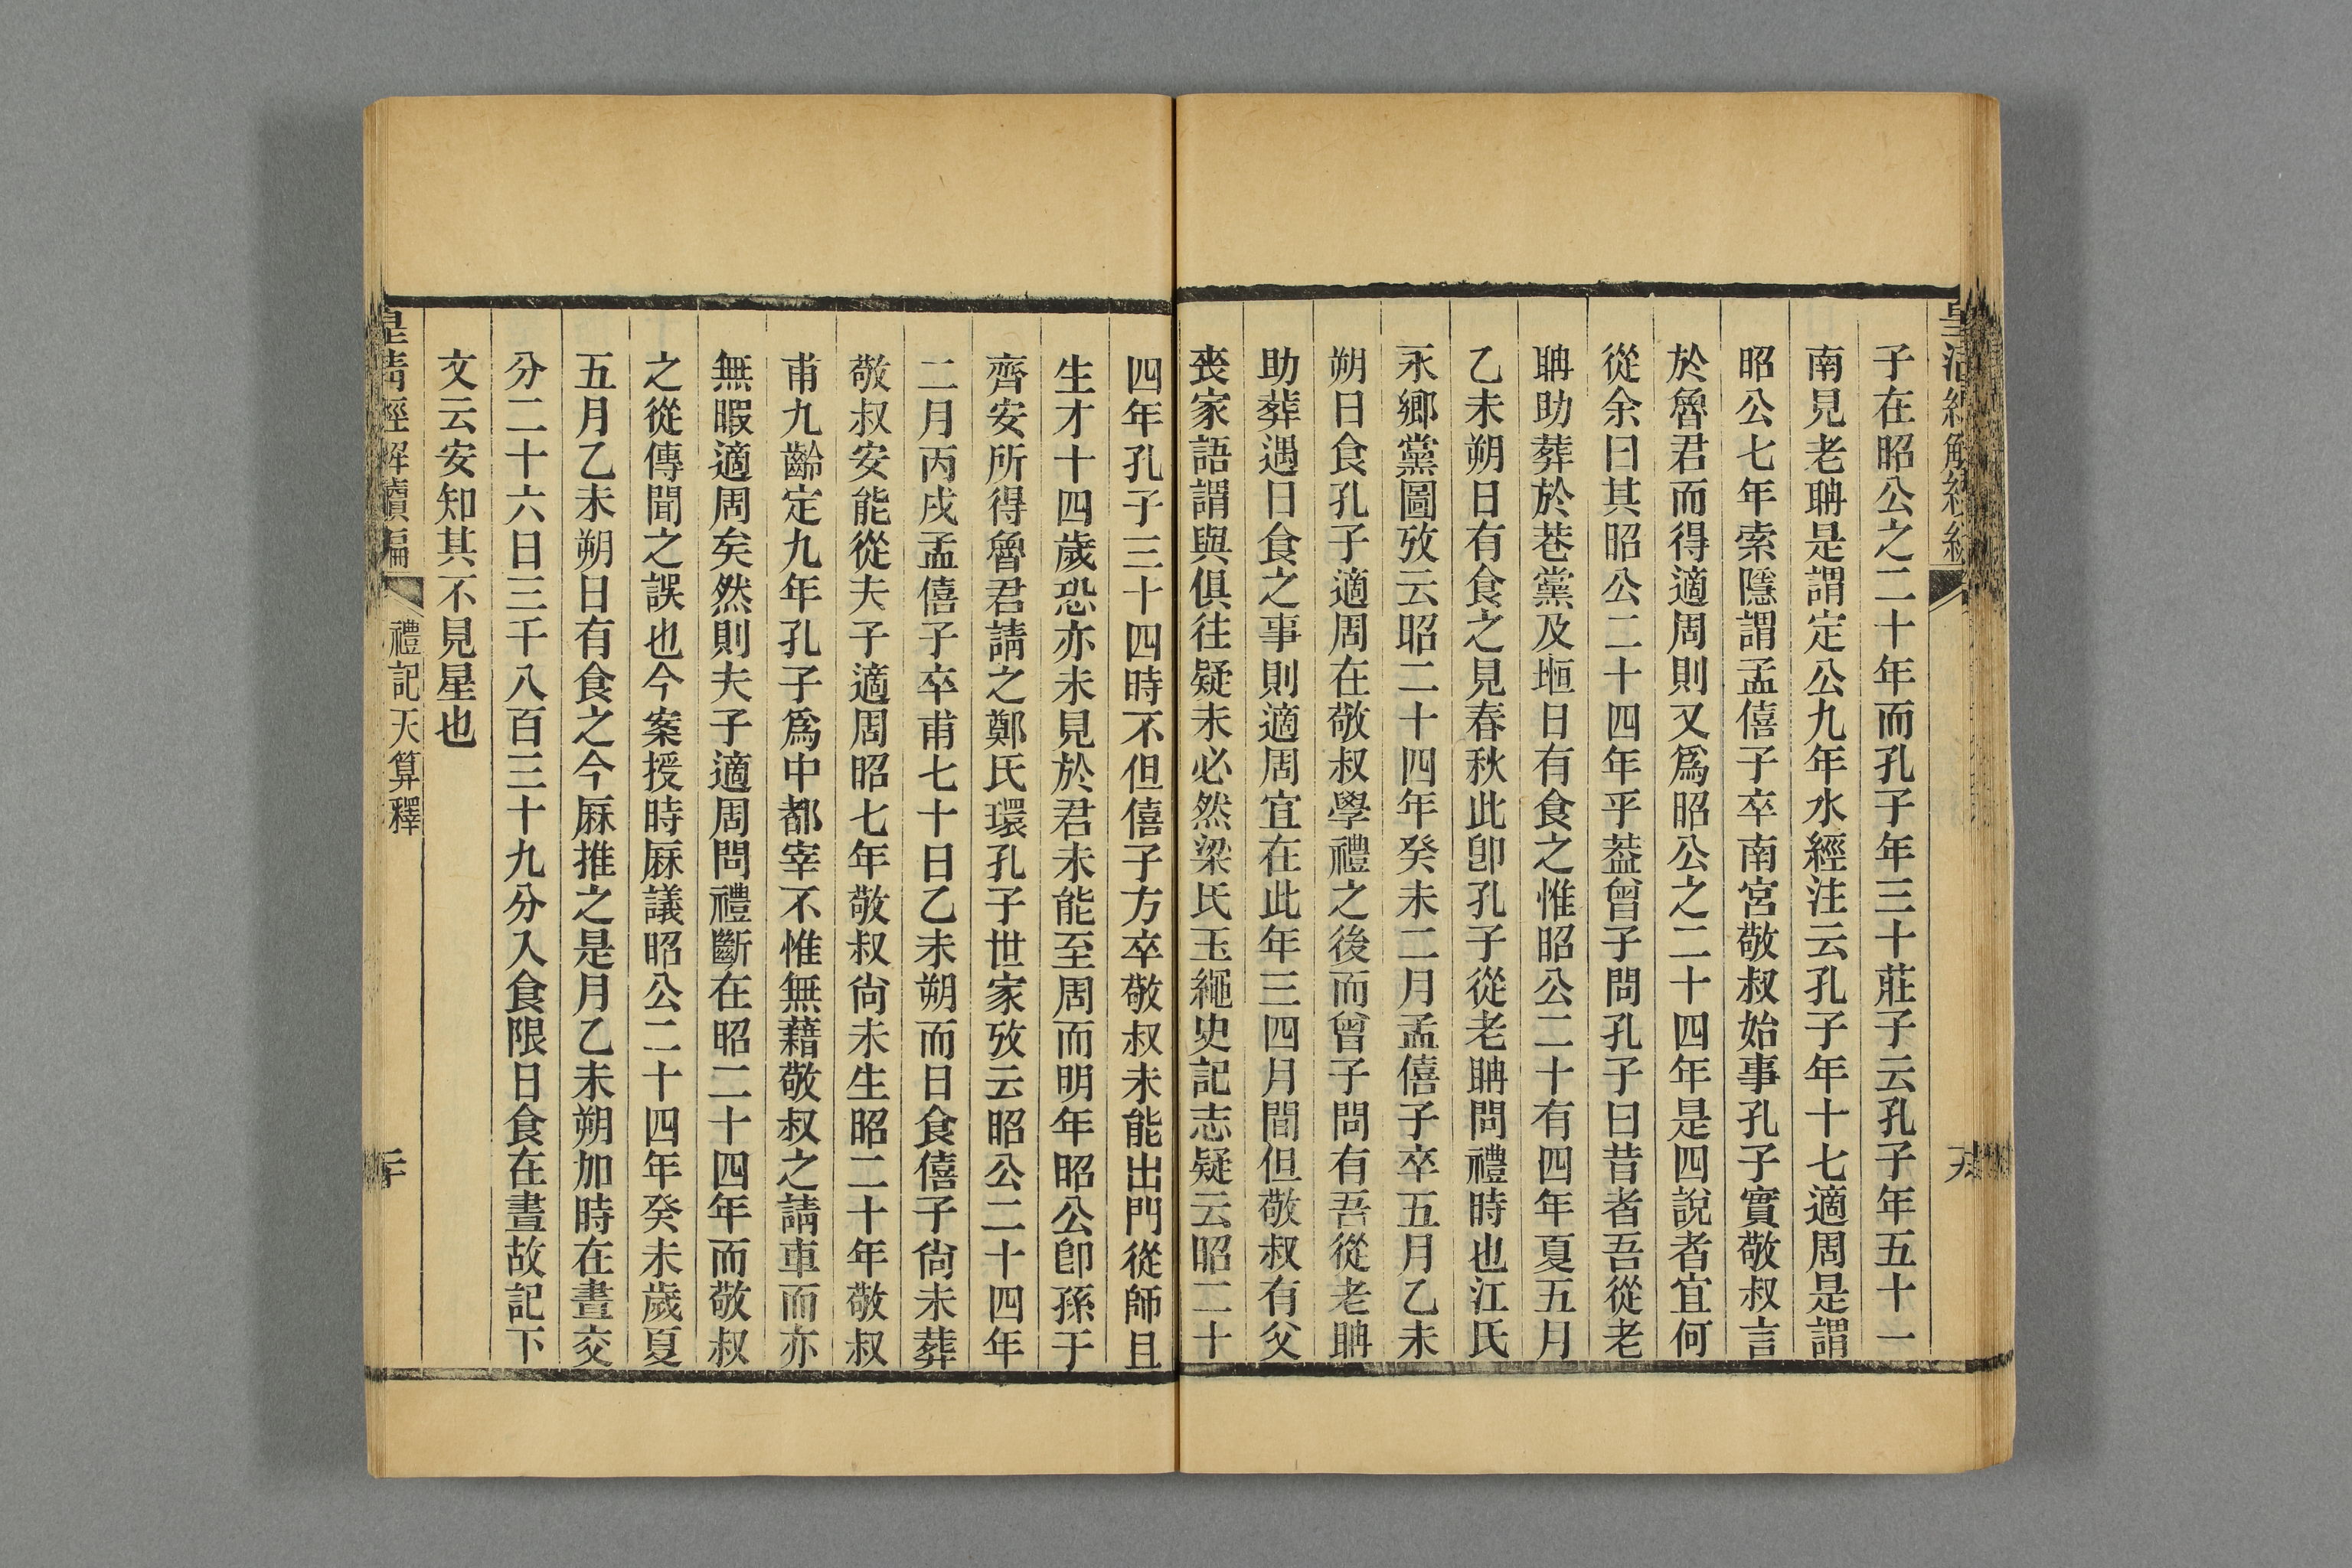 子在昭公之二十年而孔子年三十莊子云孔子年五十一
南見老聃是謂定公九年水經注云孔子年十七適周是謂
昭公七年索隱謂孟僖子卒南宮敬叔始事孔子實敬叔言
於魯君而得適周則又爲昭公之二十四年是四說者宜何
從余曰其昭公二十四年乎葢曾子問孔子曰昔者吾從老
聃助葬於巷黨及堩日有食之惟昭公二十有四年夏五月
乙未朔日有食之見春秋此卽孔子從老聃問禮時也江氏
永鄉黨圖攷云昭二十四年癸未二月孟僖子卒五月乙未
朔日食孔子適周在敬叔學禮之後而曾子問有吾從老聃
助葬遇日食之事則適周宜在此年三四月間但敬叔有父
喪家語謂與俱往疑未必然梁氏玉繩史記志疑云昭二十
四年孔子三十四時不但僖子方卒敬叔未能出門從師且
生才十四歲恐亦未見於君未能至周而明年昭公卽孫于
齊安所得魯君請之鄭氏環孔子世家攷云昭公二十四年
二月丙戌孟僖子卒甫七十日乙未朔而日食僖子尙未葬
敬叔安能從夫子適周昭七年敬叔尙未生昭二十年敬叔
甫九齡定九年孔子爲中都宰不惟無藉敬叔之請車而亦
無暇適周矣然則夫子適周問禮斷在昭二十四年而敬叔
之從傳聞之誤也今案授時厤議昭公二十四年癸未歲夏
五月乙未朔日有食之今厤推之是月乙未朔加時在晝交
分二十六日三千八百三十九分入食限日食在晝故記下
文云安知其不見星也
皇清經解續編
禮記天算釋
二十